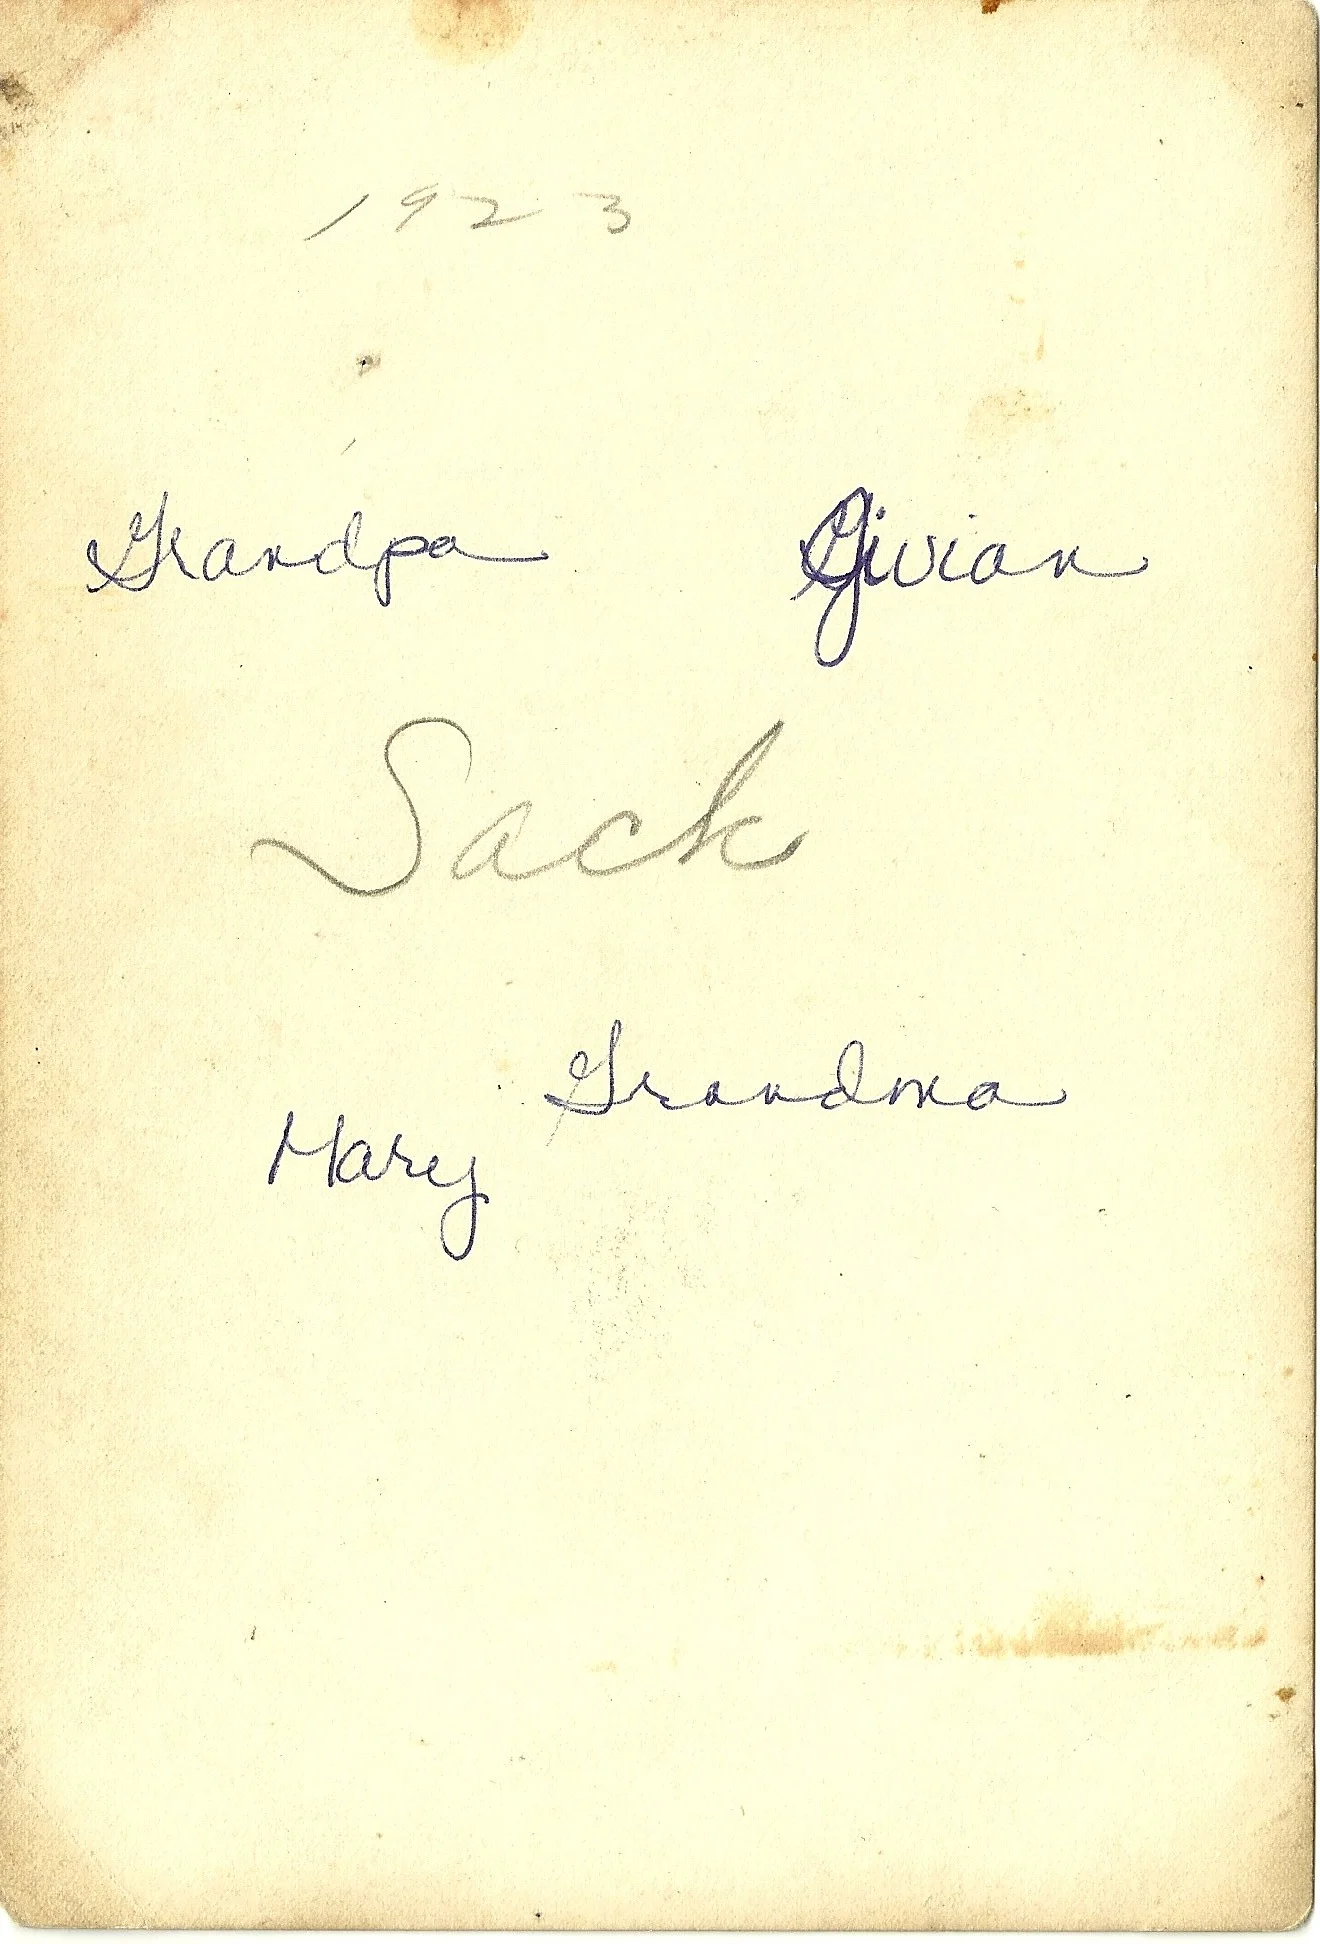 1923
Grandpa Givian
Sack
Grandma
Mary